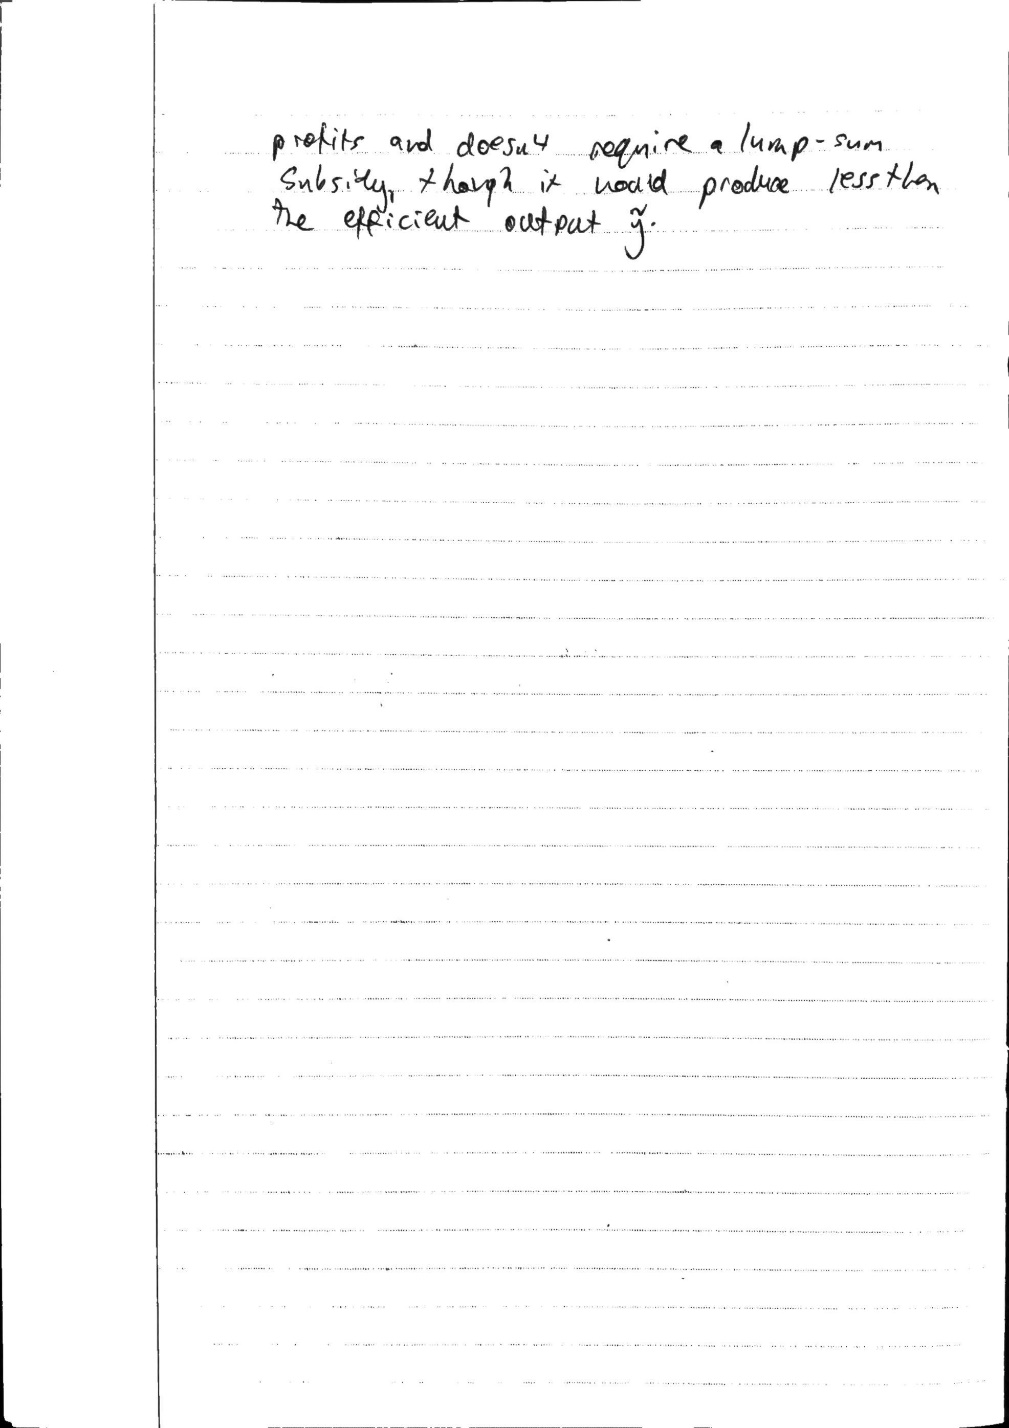 profits and doesn't require a lump-sum
Subsidy, though it would produce less than
the efficient output ỹ.